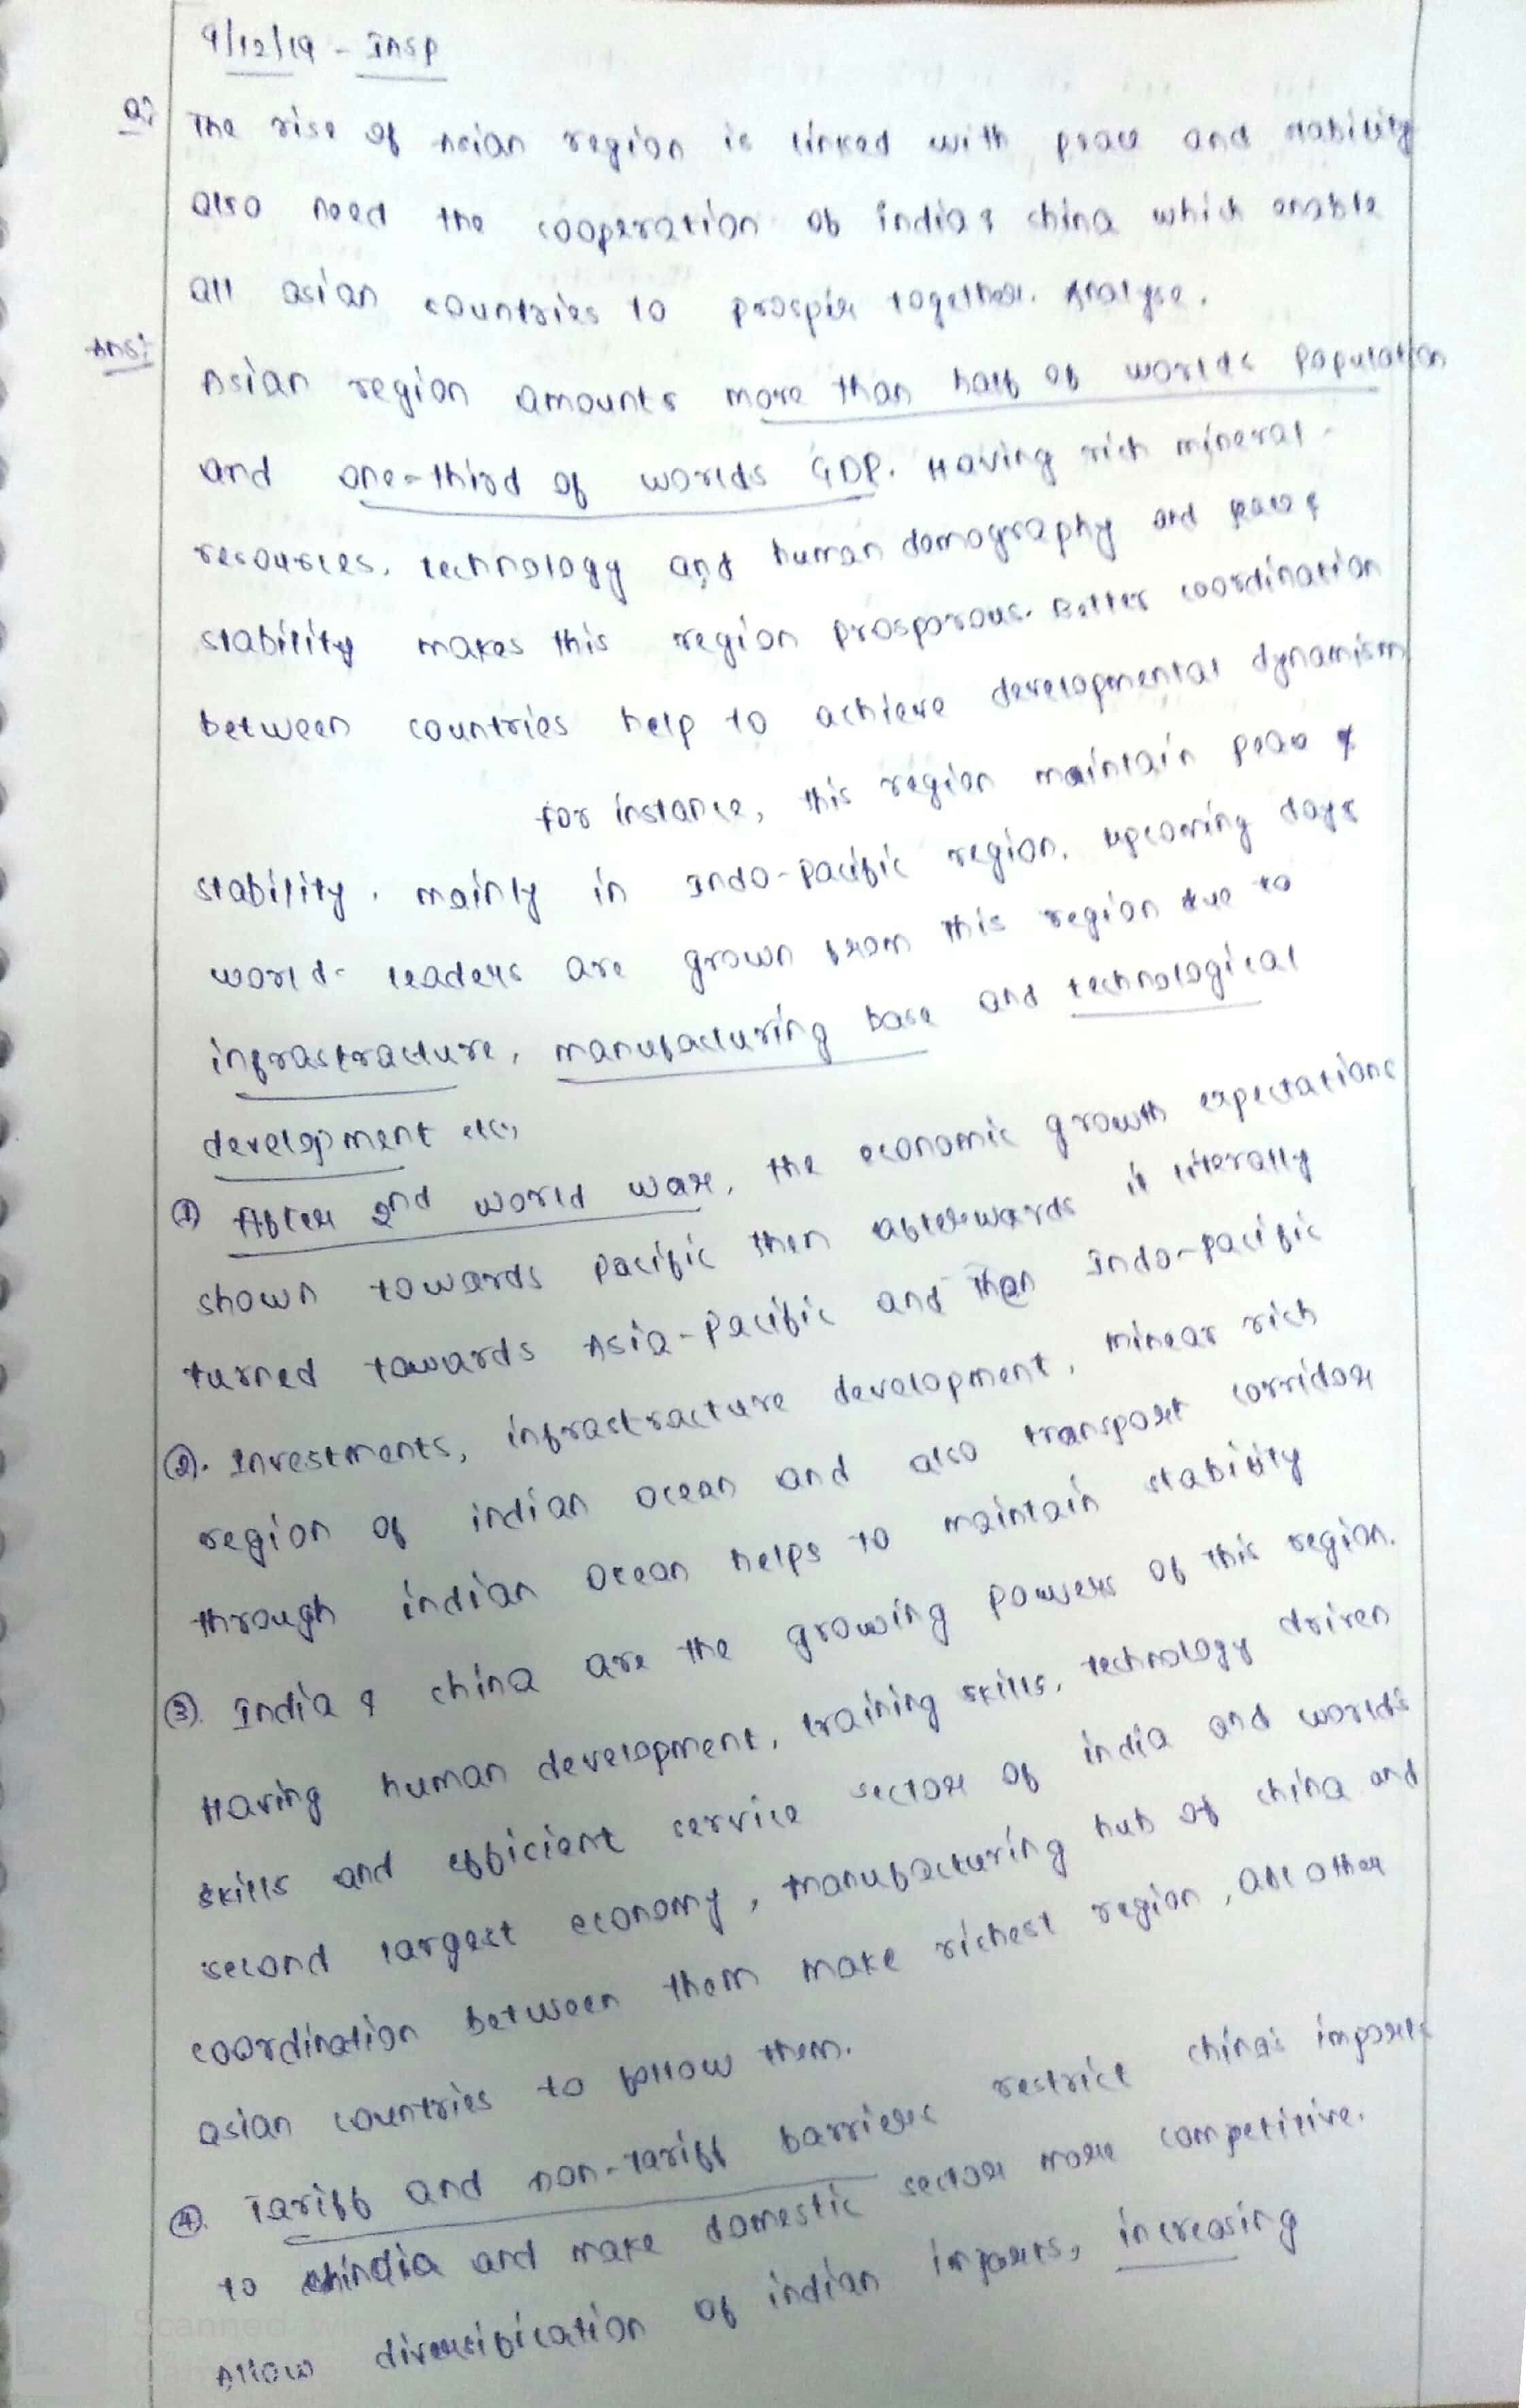 9/12/19 - INSP
Q) The rise of Asian region is linked with peace and stability
also need the cooperation of India & china which enable
all asian countries to prosper together. Analyse.
Ans: Asian region amounts more than half of worlds population
and one-third of worlds GDP. Having rich mineral-
resources, technology and human demography and peace &
stability makes this region prosporous. Better coordination
between countries help to achieve developmental dynamism
For instance, this region maintain peace &
stability, mainly in Indo-pacific region. upcoming days
world- leaders are grown from this region due to
infrastracture, manufacturing base and technological
development etc,
① After 2nd world war, the economic growth expectations
shown towards pacific then afterwards it literally
turned towards Asia-pacific and then Indo-pacific
②. Investments, infrastracture development, minear rich
region of indian ocean and also transport corridor
through indian ocean helps to maintain stability
③. India & china are the growing powers of this region.
Having human development, training skills, technology driven
skills and efficient service sector of india and world's
second largest economy, manufacturing hub of china and
coordination between them make richest region, other
asian countries to follow them.
④. Tariff and non-tariff barriers restrict china's imports
to india and make domestic sector more competitive.
Allow diversification of indian imports, increasing
Scanned wi